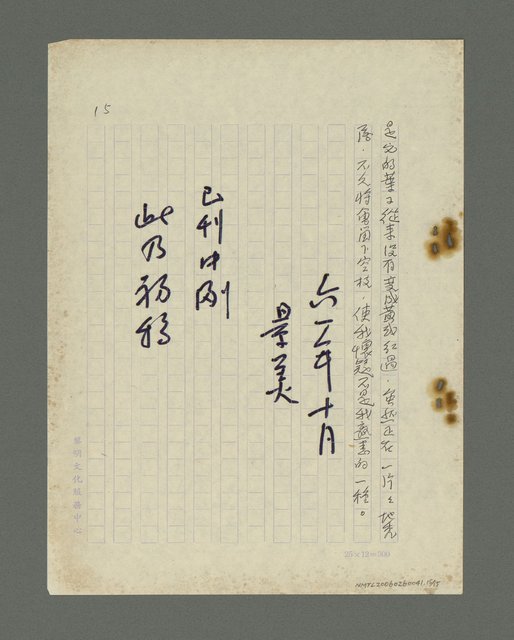 是它的葉子從來沒有變成黃或紅過，雖然正在一片々地凋
落，不久將會留下空枝，使我懷疑不是我意寫的一種。
六一年十月
景美
已刊中副
此乃初稿
15
黎明文化服務中心
25×12=300
NMTL20060260041.15/15